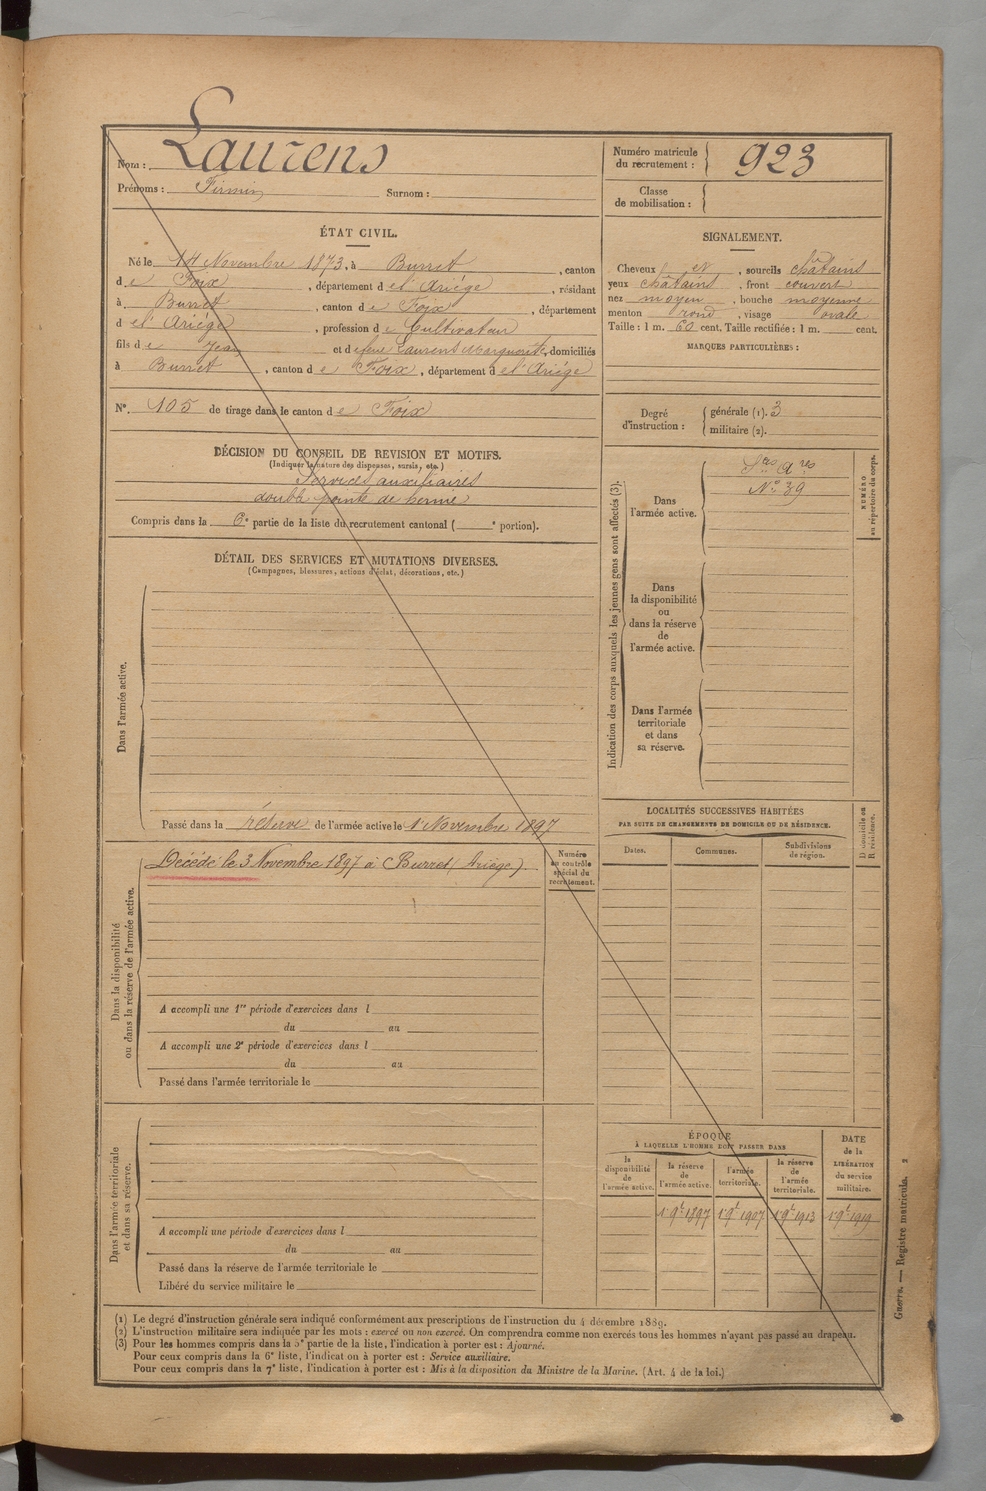 Nom : Laurens
Prénoms : Firmin Surnom :
Numéro matricule du recrutement : 923
Classe de mobilisation :
ÉTAT CIVIL.
Né le 14 Novembre 1873, à Burret, canton
de Foix, département de l'Ariége, résidant
à Burret, canton de Foix, département
de l'Ariége, profession de Cultivateur
fils de Jean et de feue Laurens Marguerite, domiciliés
à Burret, canton de Foix, département de l'Ariége
N°. 105 de tirage dans le canton de Foix
SIGNALEMENT.
Cheveux et, sourcils châtains
yeux châtains, front couvert
nez moyen, bouche moyenne
menton rond, visage ovale
Taille : 1 m. 60 cent. Taille rectifiée : 1 m. cent.
MARQUES PARTICULIÈRES :
Degré d'instruction : générale (1). 3
militaire (2).
DÉCISION DU CONSEIL DE REVISION ET MOTIFS.
(Indiquer la nature des dispenses, sursis, etc.)
Services auxiliaires
double pointe de hernie
Compris dans la 6e partie de la liste du recrutement cantonal ( e portion).
DÉTAIL DES SERVICES ET MUTATIONS DIVERSES.
(Campagnes, blessures, actions d'éclat, décorations, etc.)
Dans l'armée active.
Passé dans la réserve de l'armée active le 1 Novembre 1897
Indication des corps auxquels les jeunes gens sont affectés (3).
Dans l'armée active.
Sces Aires
N° 39
NUMÉRO au répertoire du corps.
Dans la disponibilité ou dans la réserve de l'armée active.
Dans l'armée territoriale et dans sa réserve.
Dans la disponibilité ou dans la réserve de l'armée active.
Décédé le 3 Novembre 1897 à Burret (Ariége).
Numéro au contrôle spécial du recrutement.
A accompli une 1re période d'exercices dans l
du au
A accompli une 2e période d'exercices dans l
du au
Passé dans l'armée territoriale le
LOCALITÉS SUCCESSIVES HABITÉES
PAR SUITE DE CHANGEMENTS DE DOMICILE OU DE RÉSIDENCE.
Dates. Communes. Subdivisions de région. D domicile ou R résidence.
Dans l'armée territoriale et dans sa réserve.
A accompli une période d'exercices dans l
du au
Passé dans la réserve de l'armée territoriale le
Libéré du service militaire le
ÉPOQUE
À LAQUELLE L'HOMME DOIT PASSER DANS
la disponibilité de l'armée active. la réserve de l'armée active. l'armée territoriale. la réserve de l'armée territoriale. DATE de la LIBÉRATION du service militaire.
1 9bre 1897 1 9bre 1907 1 9bre 1913 1 9bre 1919
(1) Le degré d'instruction générale sera indiqué conformément aux prescriptions de l'instruction du 4 décembre 1889.
(2) L'instruction militaire sera indiquée par les mots : exercé ou non exercé. On comprendra comme non exercés tous les hommes n'ayant pas passé au drapeau.
(3) Pour les hommes compris dans la 5e partie de la liste, l'indication à porter est : Ajourné.
Pour ceux compris dans la 6e liste, l'indication à porter est : Service auxiliaire.
Pour ceux compris dans la 7e liste, l'indication à porter est : Mis à la disposition du Ministre de la Marine. (Art. 4 de la loi.)
Guerre. — Registre matricule. 2